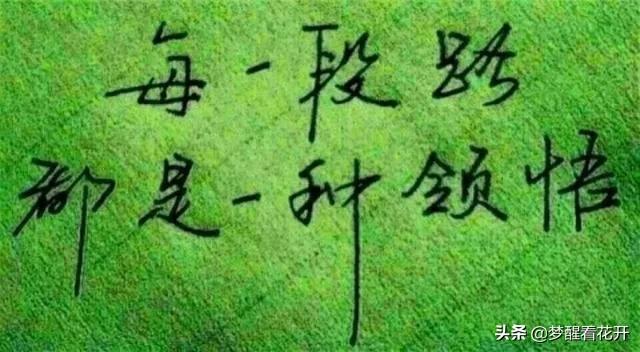 每一段路
都是一种领悟
头条 @梦醒看花开